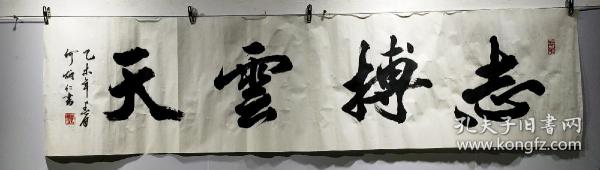 志搏雲天
乙未年春月
何炳仁書
孔夫子旧書网
www.kongfz.com